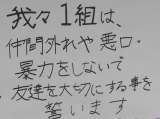 我々1組は、
仲間外れや悪口・
暴力をしないで
友達を大切にする事を
誓います